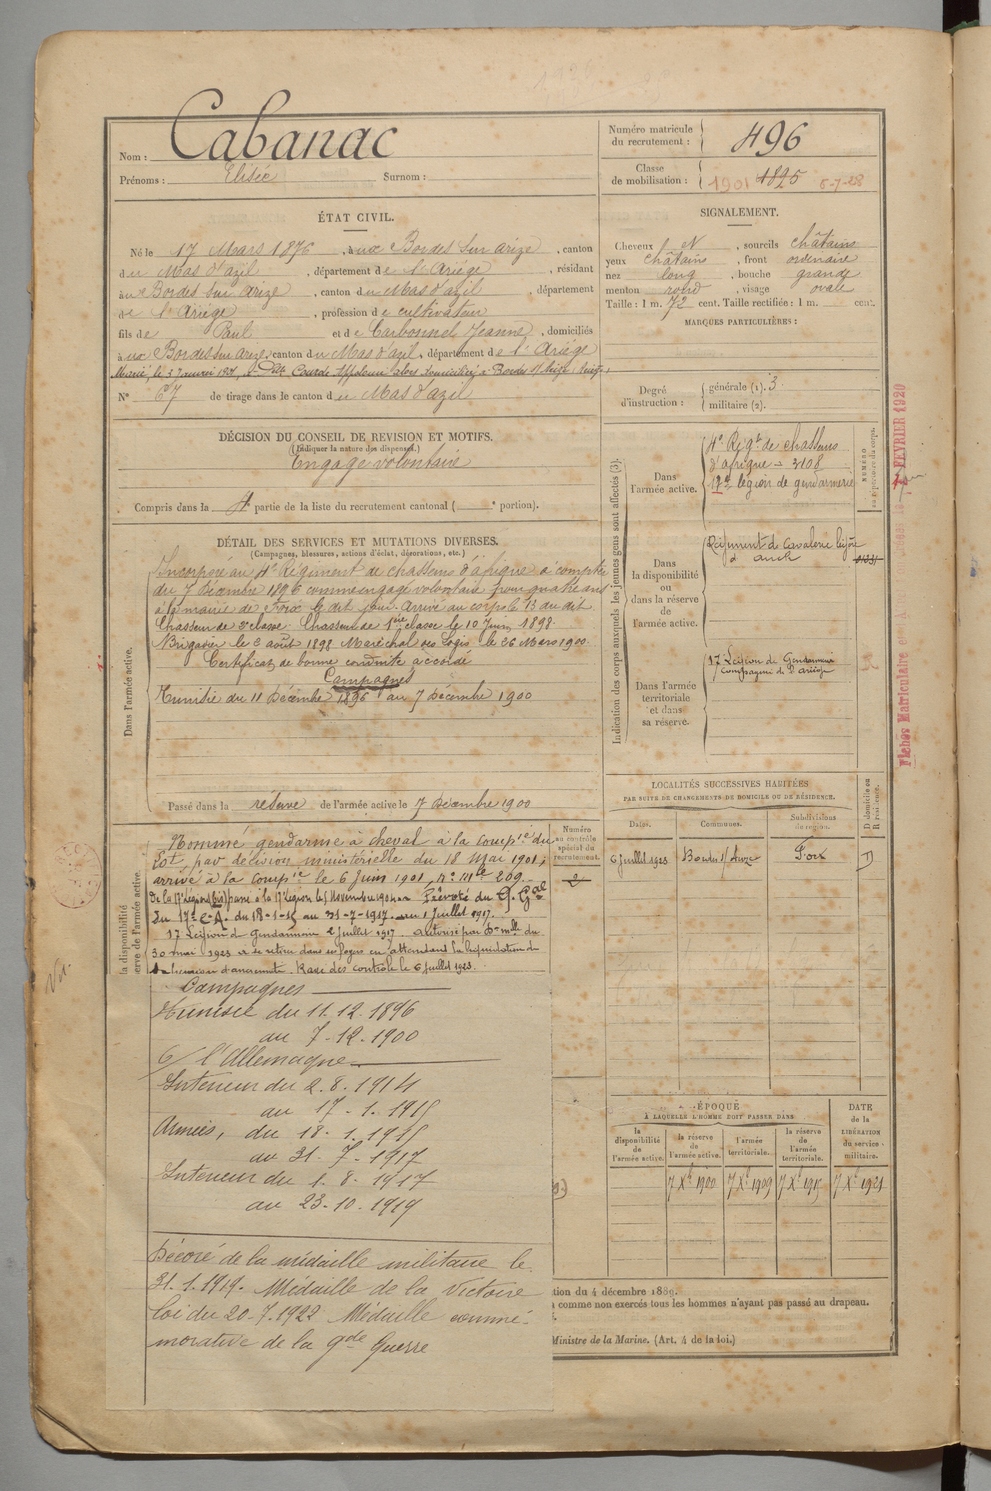 Nom : Cabanac
Prénoms : Elisée Surnom :
Numéro matricule du recrutement : 496
Classe de mobilisation : 1901 1895 8-7-28
ÉTAT CIVIL.
Né le 17 Mars 1876, à aux Bordes sur Arize, canton
du Mas d'azil, département de l'Ariège, résidant
à aux Bordes sur Arize, canton du Mas d'azil, département
de l'Ariège, profession de cultivateur
fils de Paul et de Carbonnel Jeanne, domiciliés
à aux Bordes sur Arize, canton du Mas d'azil, département de l'Ariège
Marié, le 3 Janvier 1901, à Courde alors domiciliée à Bordes s/ Arize
N° 67 de tirage dans le canton du Mas d'azil
SIGNALEMENT.
Cheveux, sourcils châtains
yeux châtains, front ordinaire
nez long, bouche grande
menton rond, visage ovale
Taille : 1 m. 72 cent. Taille rectifiée : 1 m. cent.
MARQUES PARTICULIÈRES :
Degré d'instruction : générale (1). 3
militaire (2).
DÉCISION DU CONSEIL DE REVISION ET MOTIFS.
(Indiquer la nature des dispenses.)
Engagé volontaire
Compris dans la 4e partie de la liste du recrutement cantonal ( e portion).
DÉTAIL DES SERVICES ET MUTATIONS DIVERSES.
(Campagnes, blessures, actions d'éclat, décorations, etc.)
Dans l'armée active.
Incorporé au 4e Régiment de chasseurs d'afrique à compter
du 7 Décembre 1896 comme engagé volontaire pour quatre ans
à la mairie de Foix le dit jour. Arrivé au corps le 13 du dit.
Chasseur de 2e classe. Chasseur de 1ère classe le 10 Juin 1898.
Brigadier le 2 août 1898. Maréchal des Logis le 26 Mars 1900.
Certificat de bonne conduite accordé
Campagnes
Tunisie du 11 Décembre 1896 au 7 Décembre 1900
Passé dans la réserve de l'armée active le 7 Décembre 1900
la disponibilité
erve de l'armée active.
Nommé gendarme à cheval à la compie du
Lot, par décision ministérielle du 18 Mai 1901;
arrivé à la compie le 6 Juin 1901, N° Mle 209.
De la 17e Légion (bis) passé à la 17e Légion le 1 Novembre 1904. Prévôté du G. Gal
du 17e C.A. du 18-1-15 au 31-7-1917. 1 Juillet 1917.
17 Légion de Gendarmerie 2 Juillet 1917. Autorisé par Don mlle du
30 mai 1923 à se retirer dans ses foyers en attendant la liquidation de
sa pension d'ancienneté. Rayé des contrôles le 6 Juillet 1923.
Campagnes
Tunisie du 11.12.1896
au 7-12.1900
C/ l'Allemagne
Intérieur du 2.8.1914
au 17-1.1915
Armées, du 18-1.1915
au 31.7.1917
Intérieur du 1.8.1917
au 23.10.1919
Décoré de la médaille militaire le
31.1.1919. Médaille de la Victoire
loi du 20.7.1922 Médaille commé-
morative de la gde Guerre
Numéro au contrôle spécial du recrutement.
2
Indication des corps auxquels les jeunes gens sont affectés (3).
Dans l'armée active.
4e Régt de chasseurs
d'afrique - 3108
17e légion de gendarmerie
NUMÉRO
au répertoire du corps.
Dans la disponibilité ou dans la réserve de l'armée active.
Régiment de Cavalerie légère
d'auch
Dans l'armée territoriale et dans sa réserve.
17 Légion de Gendarmerie
Compagnie de l'Ariège
Fiches Matriculaire
FEVRIER 1920
LOCALITÉS SUCCESSIVES HABITÉES
PAR SUITE DE CHANGEMENTS DE DOMICILE OU DE RÉSIDENCE.
Dates. Communes. Subdivisions de région. D domicile ou R résidence.
6 Juillet 1923 Bordes s/ Arize Foix D
ÉPOQUE
À LAQUELLE L'HOMME DOIT PASSER DANS
la disponibilité de l'armée active. la réserve de l'armée active. l'armée territoriale. la réserve de l'armée territoriale.
DATE de la LIBÉRATION du service militaire.
7 Xbre 1900 7 Xbre 1909 7 Xbre 1915 7 Xbre 1921
tion du 4 décembre 1889.
comme non exercés tous les hommes n'ayant pas passé au drapeau.
Ministre de la Marine. (Art. 4 de la loi.)
Vu.